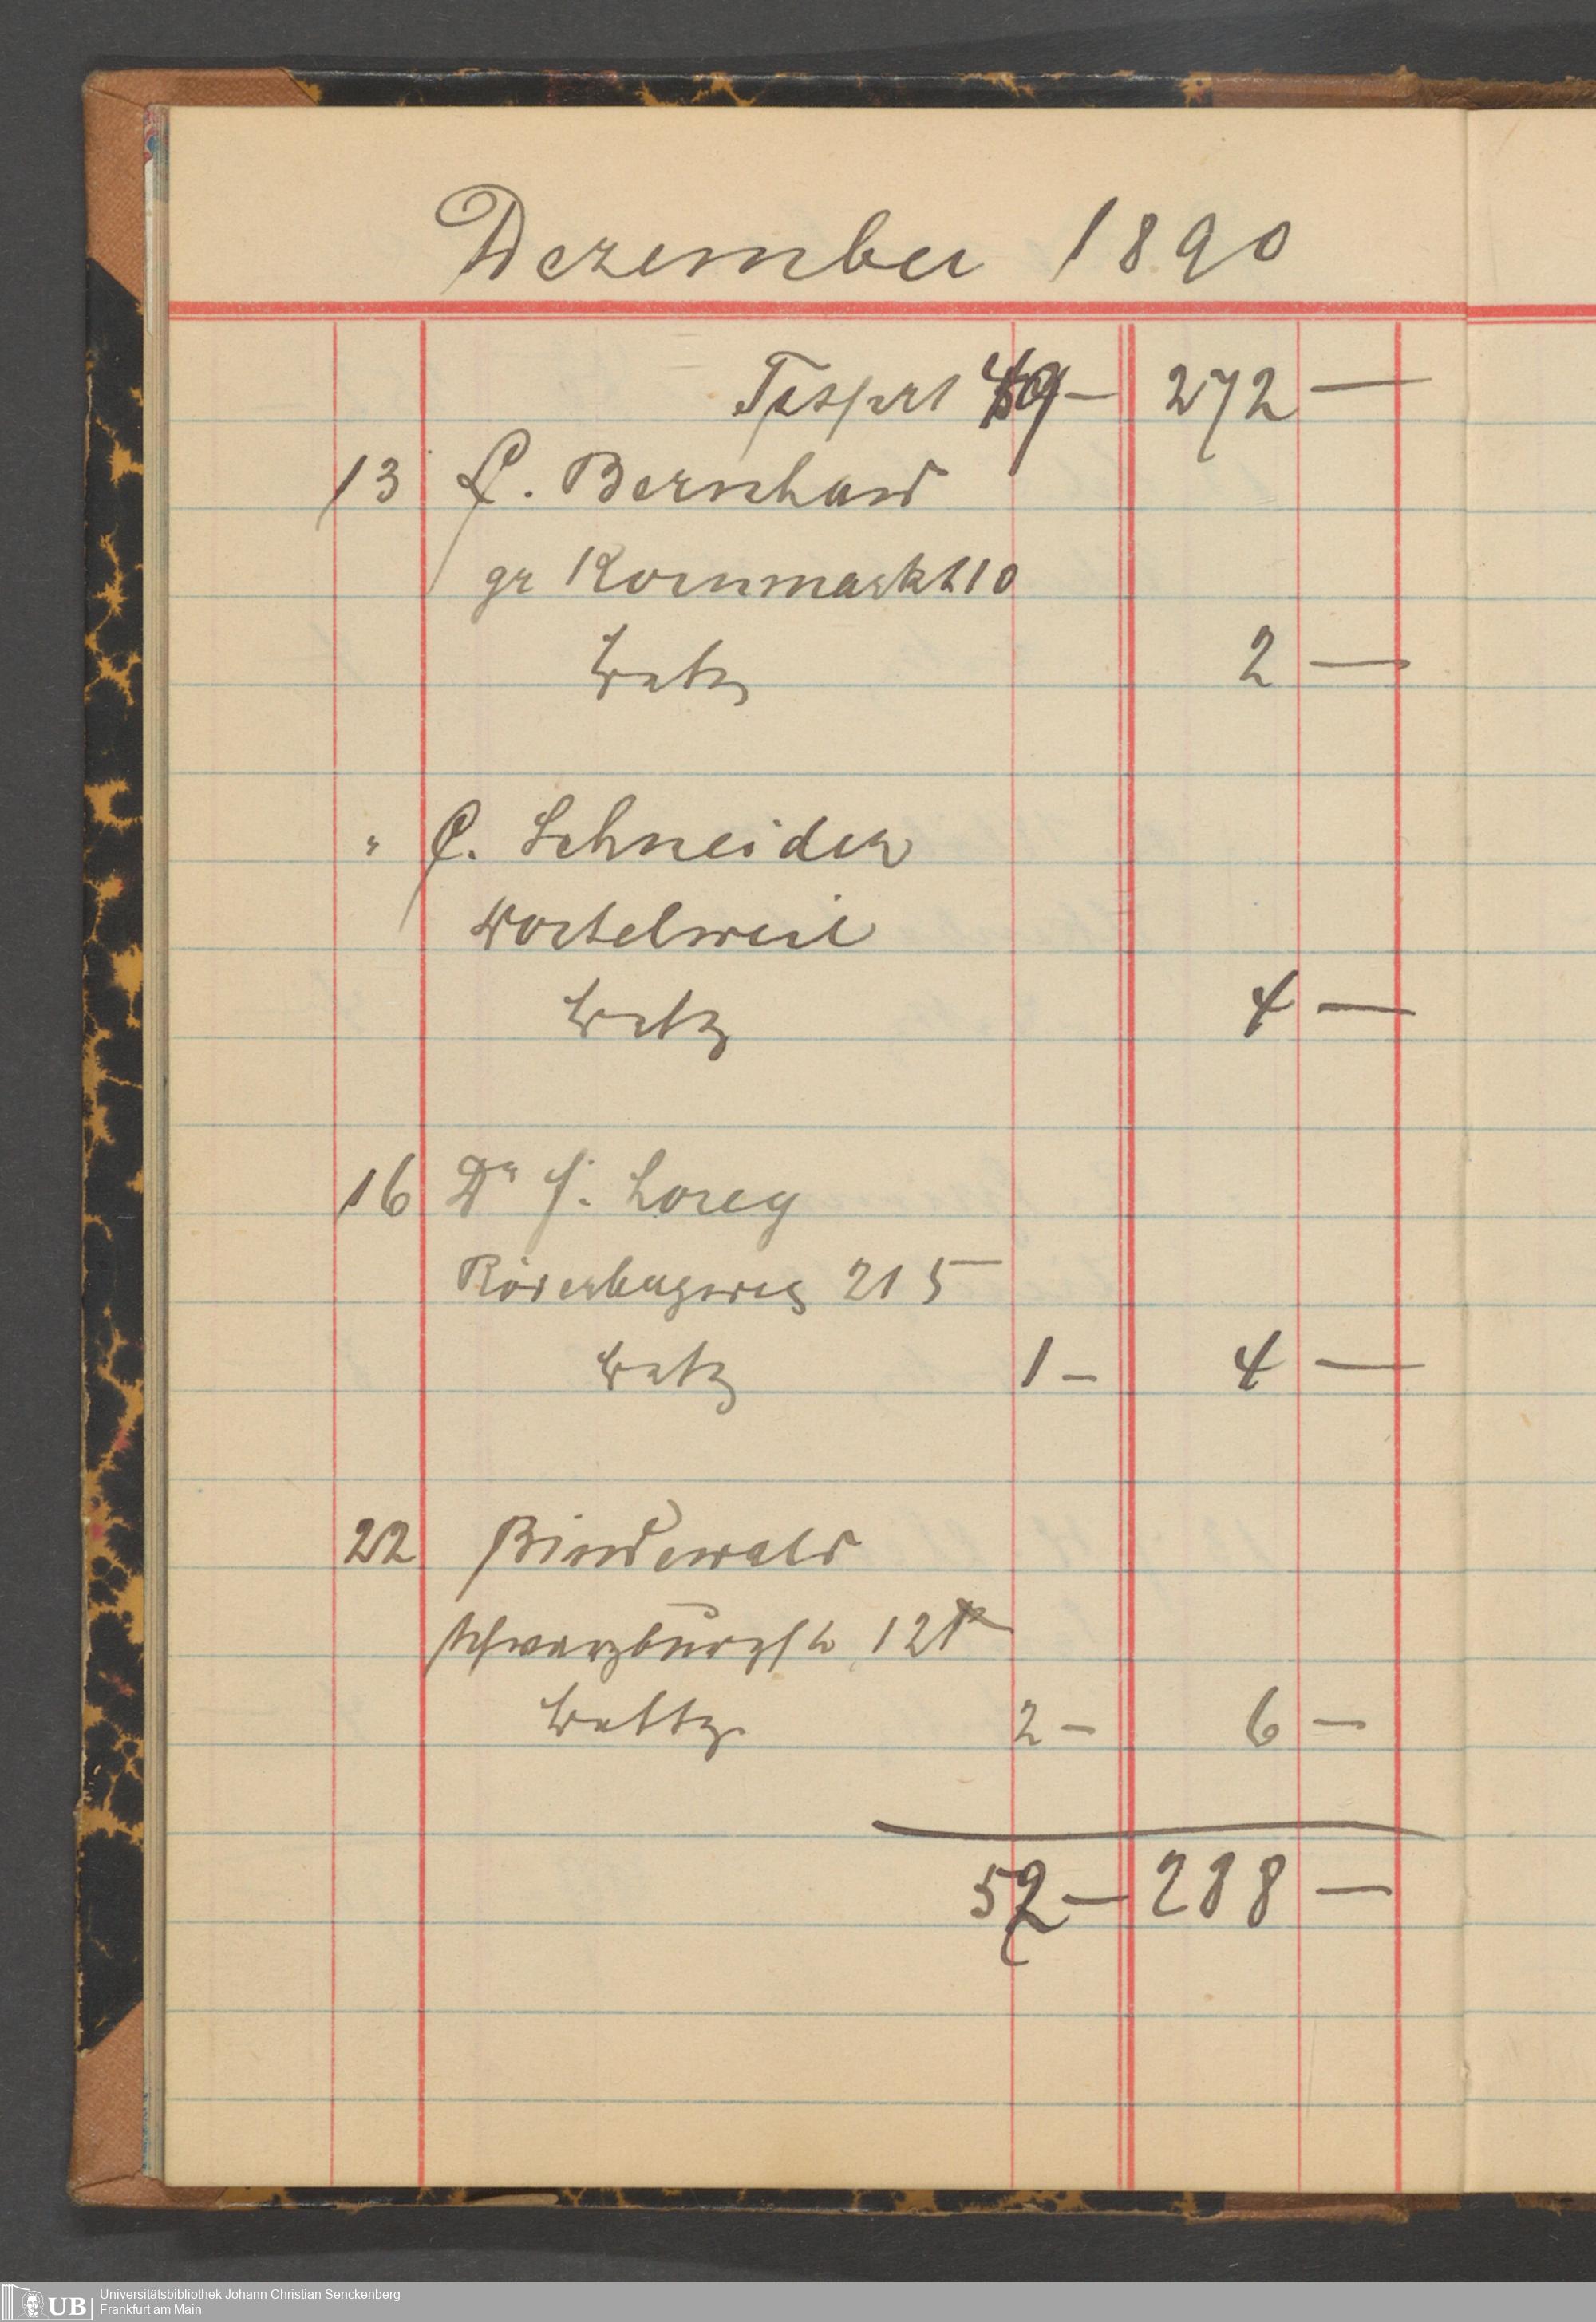 Dezember 1890
Trsprt 49 — 272 —
13 L. Bernhard
gr Kornmarkt 10
2 —
" C. Schneider
Wortelweil
4 —
16 Dr J. Lorey
Röderbergweg 215
1 — 4 —
22 Bindewald
Schwarzburgstr 121
2 — 6 —
52 — 288 —
UB Universitätsbibliothek Johann Christian Senckenberg
Frankfurt am Main